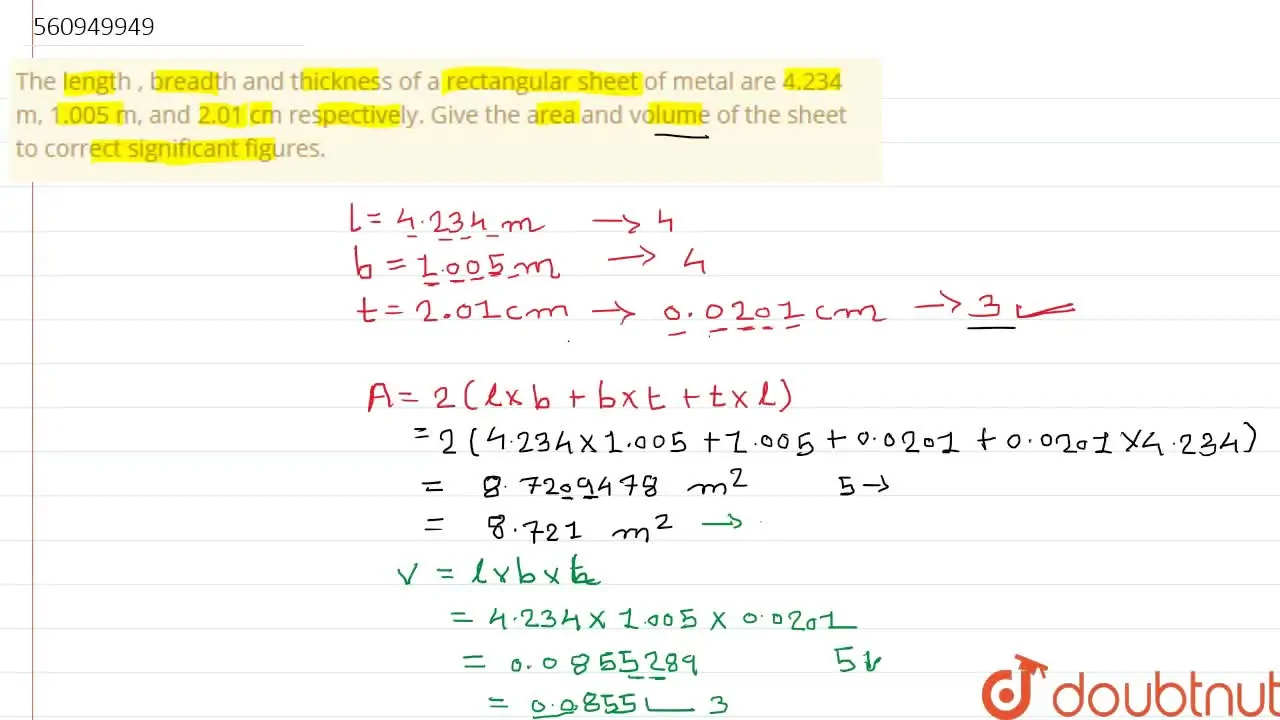 560949949
The length , breadth and thickness of a rectangular sheet of metal are 4.234
m, 1.005 m, and 2.01 cm respectively. Give the area and volume of the sheet
to correct significant figures.
l = 4.234 m → 4
b = 1.005 m → 4
t = 2.01 cm → 0.0201 cm → 3 ✓
A = 2 (l×b + b×t + t×l)
= 2 (4.234×1.005 + 1.005 + 0.0201 + 0.0201×4.234)
= 8.7209478 m² 5 →
= 8.721 m² →
V = l×b×t
= 4.234 × 1.005 × 0.0201
= 0.0855289 5
= 0.0855 3
doubtnut